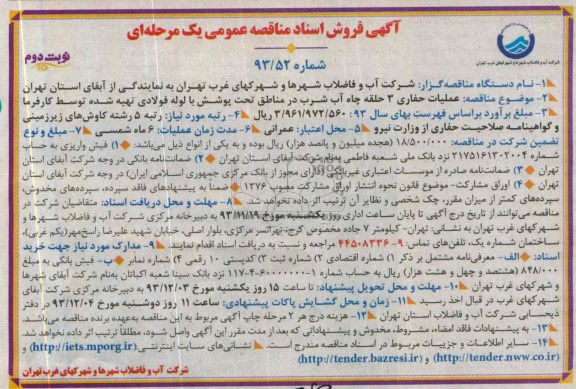 آگهی فروش اسناد مناقصه عمومی یک مرحله‌ای
شماره ۹۳/۵۲
نوبت دوم
شرکت آب و فاضلاب شهرها و شهرکهای غرب تهران
۱- نام دستگاه مناقصه‌گزار: شرکت آب و فاضلاب شهرها و شهرکهای غرب تهران به نمایندگی از آبفای استان تهران
۲- موضوع مناقصه: عملیات حفاری ۳ حلقه چاه آب شرب در مناطق تحت پوشش با لوله فولادی تهیه شده توسط کارفرما
۳- مبلغ برآورد براساس فهرست بهای سال ۹۳: ۳/۹۶۱/۹۷۲/۵۶۰ ریال ۴- رتبه مورد نیاز: رتبه ۵ رشته کاوش‌های زیرزمینی
و گواهینامه صلاحیت حفاری از وزارت نیرو ۵- محل اعتبار: عمرانی ۶- مدت زمان عملیات: ۶ ماه شمسی ۷- مبلغ و نوع
تضمین شرکت در مناقصه: ۱۸/۵۰۰/۰۰۰ (هجده میلیون و پانصد هزار) ریال بوده و به یکی از انواع ذیل می‌باشد: (۱) فیش واریزی به حساب
شماره ۲۱۷۵۱۶۱۳۰۲۰۰۴ نزد بانک ملی شعبه فاطمی به‌نام شرکت آبفای استان تهران (۲) ضمانتنامه بانکی در وجه شرکت آبفای استان
تهران (۳) ضمانتنامه صادره از موسسات اعتباری غیربانکی (دارای مجوز از بانک مرکزی جمهوری اسلامی ایران) در وجه شرکت آبفای استان
تهران (۴) اوراق مشارکت- موضوع قانون نحوه انتشار اوراق مشارکت مصوب ۱۳۷۶ ضمنا به پیشنهادهای فاقد سپرده، سپرده‌های مخدوش،
سپرده‌های کمتر از میزان مقرر، چک شخصی و نظایر آن ترتیب اثر داده نخواهد شد. ۸- مهلت و محل دریافت اسناد: متقاضیان شرکت در
مناقصه می‌توانند از تاریخ درج آگهی تا پایان ساعت اداری روز یکشنبه مورخ ۹۳/۱۱/۱۹ به دبیرخانه مرکزی شرکت آب و فاضلاب شهرها و
شهرکهای غرب تهران به نشانی: تهران- کیلومتر ۷ جاده مخصوص کرج، تهرانسر مرکزی، بلوار اصلی، خیابان شهید علیرضا راسخ‌مهر(یکم غربی)،
ساختمان شماره یک، تلفن‌های تماس: ۹-۴۴۵۰۸۳۳۶ مراجعه و نسبت به دریافت اسناد اقدام نمایند. ۹- مدارک مورد نیاز جهت خرید
اسناد: الف- معرفی‌نامه مشتمل بر ذکر ۱) شماره اقتصادی ۲) شماره ثبت ۳) کدپستی ۱۰ رقمی ۴) شماره نمابر ب- فیش بانکی به مبلغ
۸۴۸/۰۰۰ (هشتصد و چهل و هشت هزار) ریال به حساب شماره ۱-۶۰۰۰۰۰۰-۴-۱۱۷ نزد بانک سینا شعبه اکباتان به‌نام شرکت آبفای شهرها
و شهرکهای غرب تهران ۱۰- مهلت و محل تحویل پیشنهاد: تا ساعت ۱۵ روز یکشنبه مورخ ۹۳/۱۲/۰۳ به دبیرخانه مرکزی شرکت آبفای
شهرکهای غرب در قبال اخذ رسید ۱۱- زمان و محل گشایش پاکات پیشنهادی: ساعت ۱۱ روز دوشنبه مورخ ۹۳/۱۲/۰۴ در دفتر
ذیحسابی شرکت آب و فاضلاب استان تهران ۱۲- هزینه درج هر ۲ مرحله چاپ آگهی مربوط به این مناقصه به‌عهده برنده مناقصه می‌باشد.
۱۳- به پیشنهادات فاقد امضاء، مشروط، مخدوش و پیشنهاداتی که بعد از مدت مقرر این آگهی واصل شود، مطلقا ترتیب اثر داده نخواهد شد.
۱۴- سایر اطلاعات و جزییات مربوط در اسناد مناقصه مندرج است. نشانی‌های سایت اینترنتی: (http://iets.mporg.ir) و
(http://tender.nww.co.ir) و (http://tender.bazresi.ir)
شرکت آب و فاضلاب شهرها و شهرکهای غرب تهران